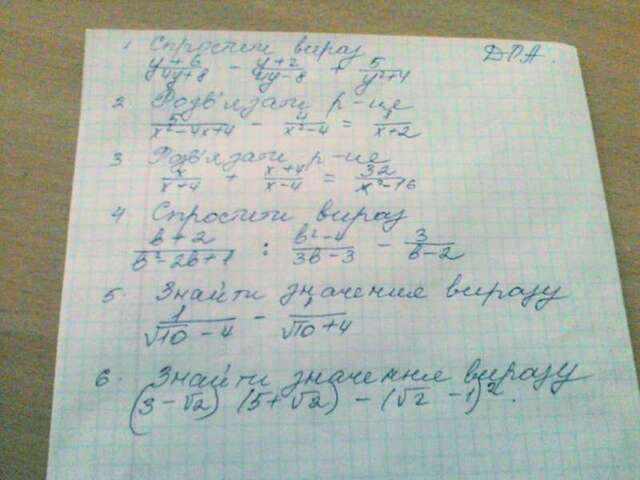 ДПА.
1 Спростити вираз
y+6/4y+8 - y+2/4y-8 + 5/y²+4
2 Розв'язати р-ще
5/x²-4x+4 - 4/x²-4 = 1/x+2
3 Розв'язати р-ще
x/x+4 + x+4/x-4 = 32/x²-16
4 Спростити вираз
b+2/b²-2b+1 : b²-4/3b-3 - 3/b-2
5. Знайти значення виразу
1/√10-4 - 1/√10+4
6. Знайти значення виразу
(3-√2) (5+√2) - (√2 -1)².